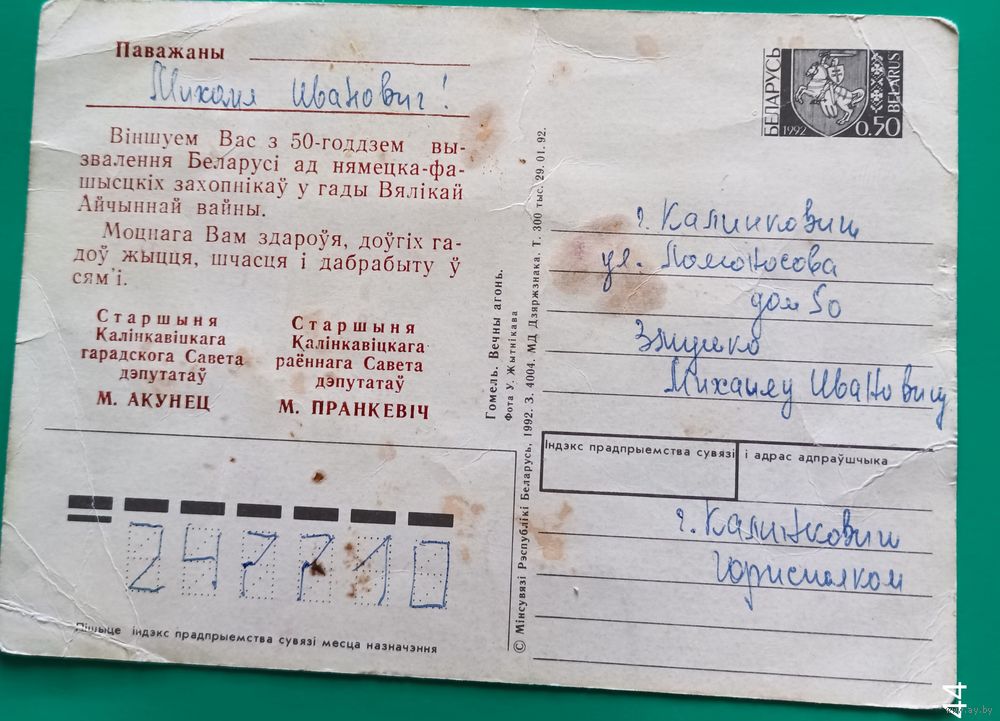 Паважаны
Михаил Иванович!
Віншуем Вас з 50-годдзем вы-
звалення Беларусі ад нямецка-фа-
шысцкіх захопнікаў у гады Вялікай
Айчыннай вайны.
Моцнага Вам здароўя, доўгіх га-
доў жыцця, шчасця і дабрабыту ў
сям'і.
Старшыня
Калінкавіцкага
гарадскога Савета
дэпутатаў
М. АКУНЕЦ
Старшыня
Калінкавіцкага
раённага Савета
дэпутатаў
М. ПРАНКЕВІЧ
247710
Пішыце індэкс прадпрыемства сувязі месца назначэння
Гомель. Вечны агонь.
Фота У. Жытнікава
© Мінсувязі Рэспублікі Беларусь, 1992. З. 4004. МД Дзяржзнака. Т. 300 тыс. 29. 01. 92.
БЕЛАРУСЬ
1992
0.50
BELARUS
г. Калинкович
ул. Ломоносова
дом 50
Михаилу Ивановичу
Індэкс прадпрыемства сувязі
і адрас адпраўшчыка
г. Калинкович
Горисполком
44
ay.by